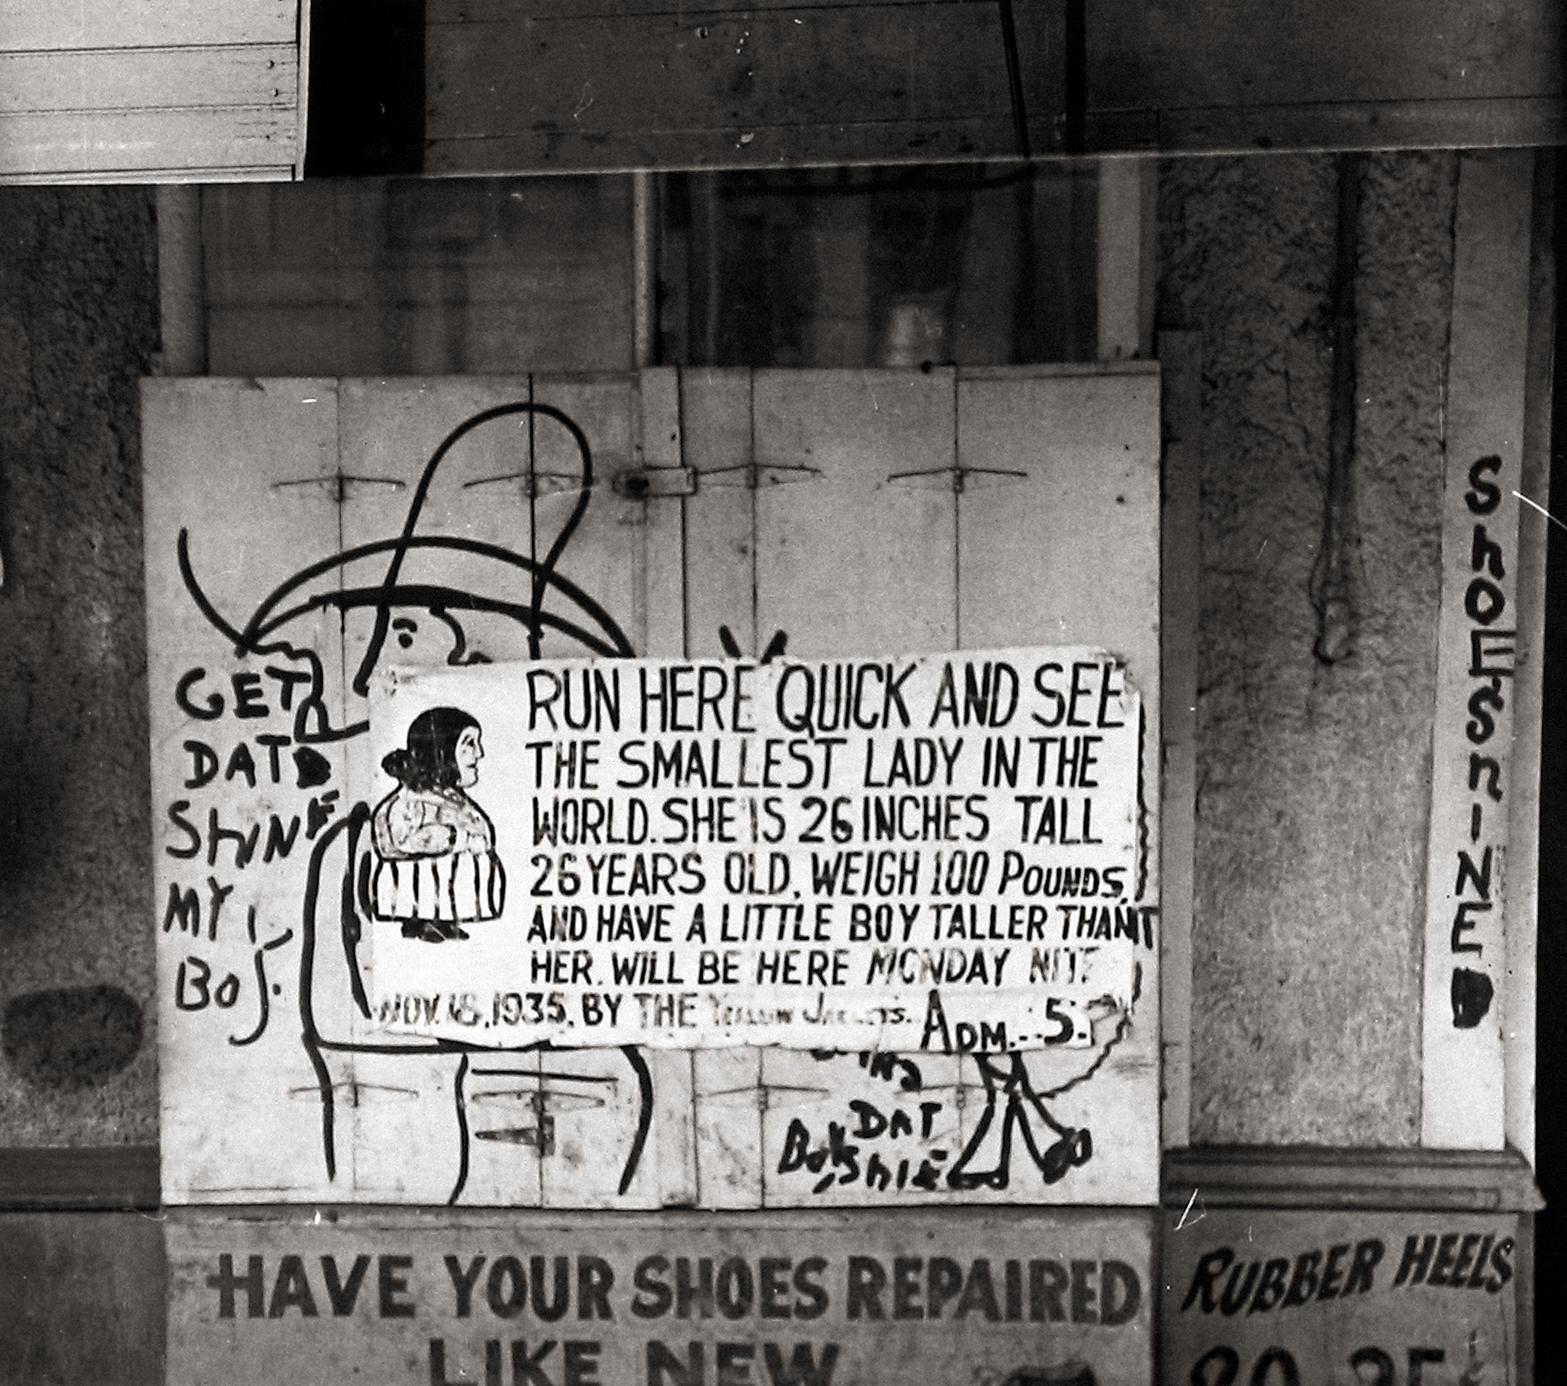 GET
DAT
SHINE
MY
BOY.
RUN HERE QUICK AND SEE
THE SMALLEST LADY IN THE
WORLD. SHE IS 26 INCHES TALL
26 YEARS OLD, WEIGH 100 POUNDS,
AND HAVE A LITTLE BOY TALLER THAN
HER. WILL BE HERE MONDAY NITE
NOV. 18, 1935. BY THE YELLOW JACKETS. ADM... 5.
DAT
BOY
ShOESHINED
HAVE YOUR SHOES REPAIRED
LIKE NEW
RUBBER HEELS